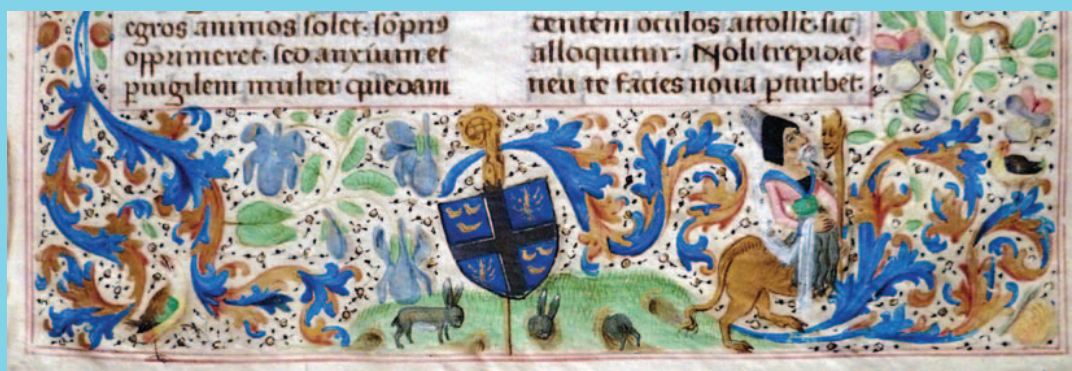 egros animos solet. sopnꝰ
opprimeret. sed anxium et
puigilem mulier quedam
tentem oculos attolle sic
alloquitur. Noli trepidae
neu te facies noua pturbet.